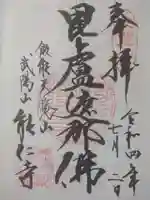 奉拝
令和四年
七月二日
毘盧遮那佛
飯能天覧山
武陽山
能仁寺